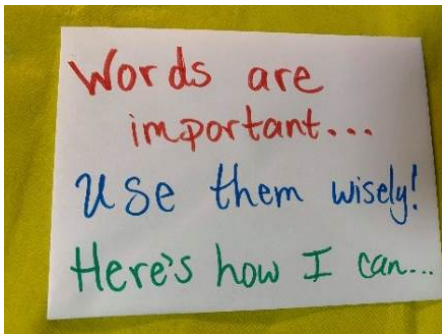 Words are
important...
Use them wisely!
Here's how I can...